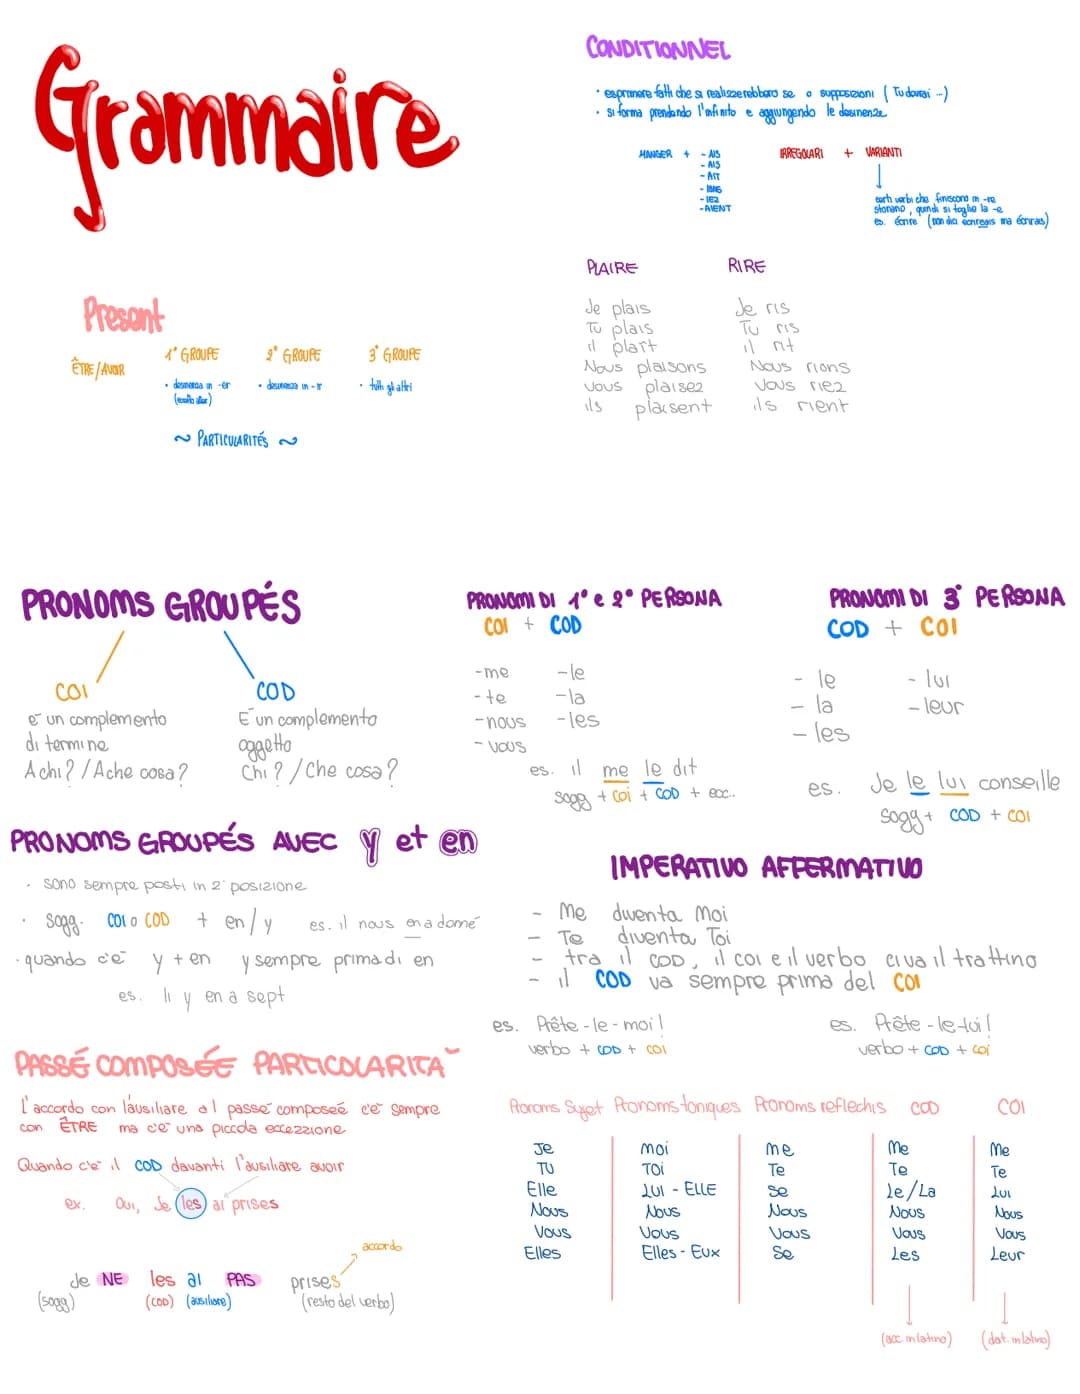 Grammaire
CONDITIONNEL
• esprimere fatti che si realizzerebbero se o supposizioni ( Tu devrai ...)
• si forma prendendo l'infinito e aggiungendo le desinenze
MANGER + - AIS
- AIS
- AIT
- IONS
- IEZ
- AIENT
IRREGOLARI + VARIANTI
certi verbi che finiscono in -re
stonano, quindi si toglie la -e
es. écrire (non dico ecrireais ma écrirais)
PLAIRE
Je plais
Tu plais
il plaît
Nous plaisons
Vous plaisez
ils plaisent
RIRE
Je ris
Tu ris
il rit
Nous rions
Vous riez
ils rient
Present
ÊTRE/AVOIR
1° GROUPE
• desinenza in -er
(eccetto aller)
2° GROUPE
• desinenza in -ir
3° GROUPE
• tutti gli altri
~ PARTICULARITÉS ~
PRONOMS GROUPÉS
COI
è un complemento
di termine
A chi? / A che cosa?
COD
È un complemento
oggetto
Chi? / Che cosa?
PRONOMI DI 1° e 2° PERSONA
COI + COD
-me -le
-te -la
-nous -les
-vous
es. il me le dit
sogg + coi + COD + ecc..
PRONOMI DI 3° PERSONA
COD + COI
- le - lui
- la - leur
- les
es. Je le lui conseille
sogg + COD + COI
PRONOMS GROUPÉS AVEC y et en
• sono sempre posti in 2° posizione
• sogg. COI o COD + en/y es. il nous en a domé
• quando c'è y + en y sempre prima di en
es. Ii y en a sept
IMPERATIVO AFFERMATIVO
- Me diventa Moi
- Te diventa Toi
- tra il COD, il COI e il verbo ci va il trattino
- il COD va sempre prima del COI
es. Prête-le-moi!
verbo + COD + COI
es. Prête-le-lui!
verbo + COD + coi
PASSÉ COMPOSÉE PARTICOLARITA
L'accordo con l'ausiliare al passé composeé c'è sempre
con ÊTRE ma c'è una piccola eccezzione
Quando c'è il COD davanti l'ausiliare avoir
ex. Oui, Je les ai prises
accordo
Je NE les ai PAS prises
(sogg) (COD) (ausiliare) (resto del verbo)
Pronoms Sujet Pronoms toniques Pronoms reflechis COD COI
Je Moi me Me Me
TU TOi Te Te Te
Elle LUI - ELLE Se Le/La LUI
Nous Nous Nous Nous Nous
Vous Vous Vous Vous Vous
Elles Elles - Eux Se Les Leur
(acc. in latino) (dat. in latino)